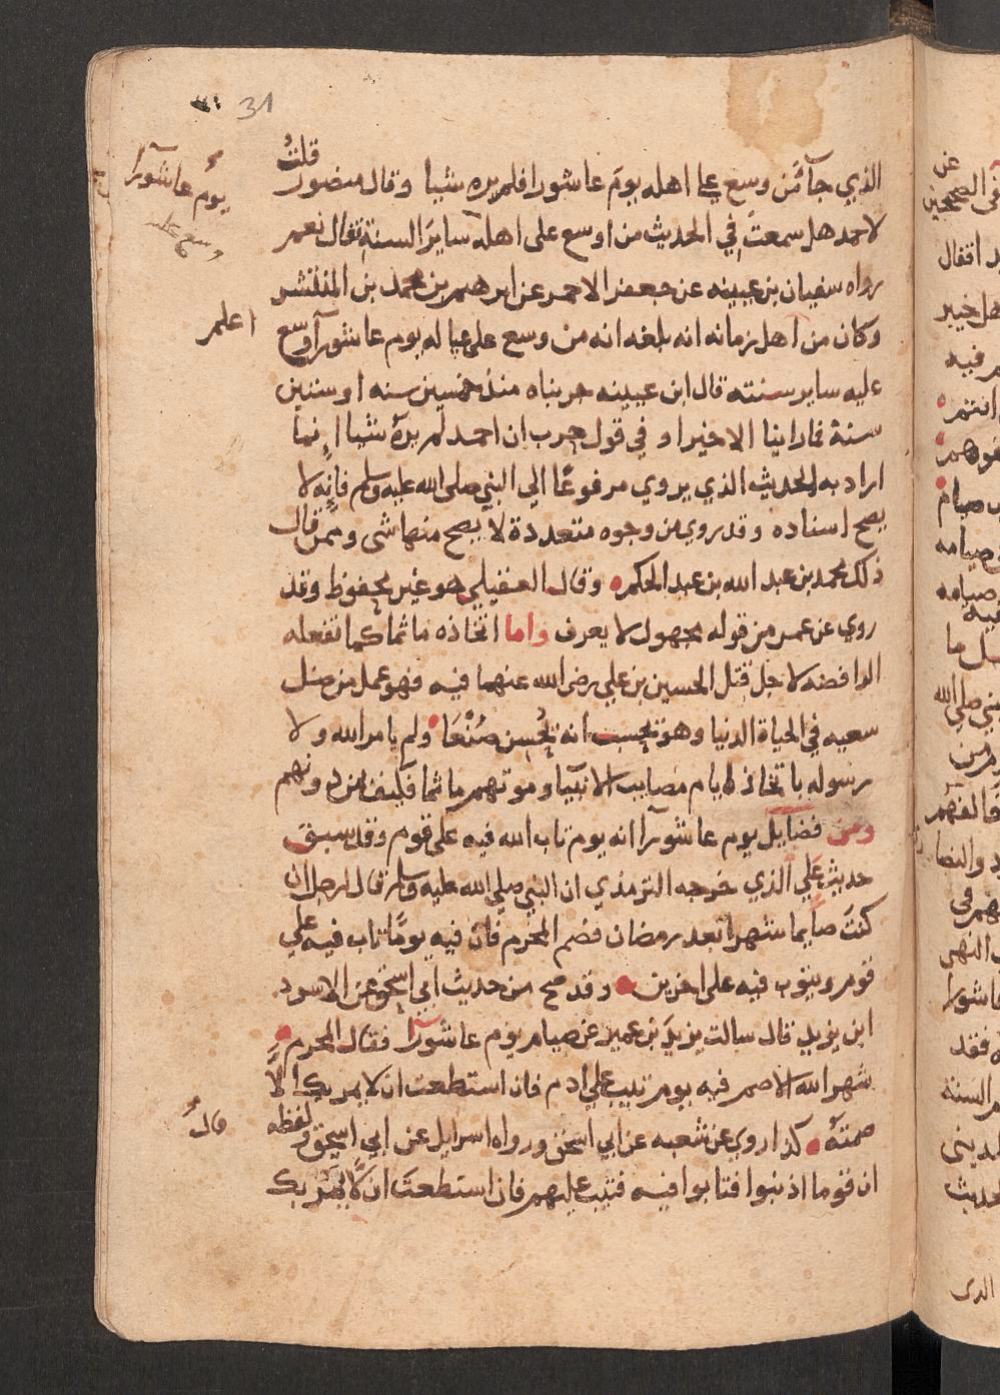 31
يوم عاشورا
قلت
الذي جآ مَن وسع علي اهله يومَ عاشورا فلم يره شيا وقال منصور
لاحمد هل سمعتَ في الحديث من اوسع على اهله سايرَ السنة فقال نعم
رواه سفيان بن عيينه عن جعفر الاحمر عن ابرهيم بن محمد بن المنتشر
وكان من اهل زمانه انه بلغه انه من وسع على عياله يوم عاشورآ اوسع
اعلم
عليه ساير سنته قال ابن عيينه جربناه منذ خمسين سنه او ستين
سنة فما راينا الا خيرا وفي قول حرب ان احمد لم يرهُ شيا إنما
اراد به الحديث الذي يروي مرفوعًا الي النبي صلى الله عليه وسلم فانه لا
يصح اسناده وقد روي من وجوه متعددة لا يصح منها شى وممن قال
ذلك محمد بن عبد الله بن عبد الحكم وقال العقيلي هو غير محفوظ وقد
روي عن عمر من قوله مجهول لا يعرف واما اتخاذه ماثما كما تفعله
الرافضه لاجل قتل الحسين بن علي رضى الله عنهما فيه فهو عمل من ضل
سعيه في الحياة الدنيا وهو يحسب انه يُحْسن صُنْعَا ولم يامر الله ولا
رسوله باتخاذ ايام مصايب الانبيا وموتهم ماثما فكيف بمن دونهم
ومن فضايل يوم عاشورآ انه يوم تاب الله فيه على قوم وقد سبق
حديث علي الذي خرجه الترمذي ان النبي صلي الله عليه وسلم قال لرجل ان
كنتَ صايما شهرا بعد رمضان فصم المحرم فان فيه يومًا تاب فيه علي
قوم ويتوب فيه على اخرين وقد صح من حديث ابي اسحق عن الاسود
ابن يزيد قال سالت يزيدَ بن عمير عن صيام يوم عاشورآ فقال المحرم
شهر الله الاصم فيه يوم تيب علي ادم فان استطعت ان لا يمر بك الَّا
صمتهُ كذا روي عن شعبه عن ابي اسحق ورواه اسرايل عن ابي اسحق ولفظه
قالَ
ان قوما اذنبوا فتابوا فيه فتيب عليهم فان استطعتَ ان لا يمُر بك